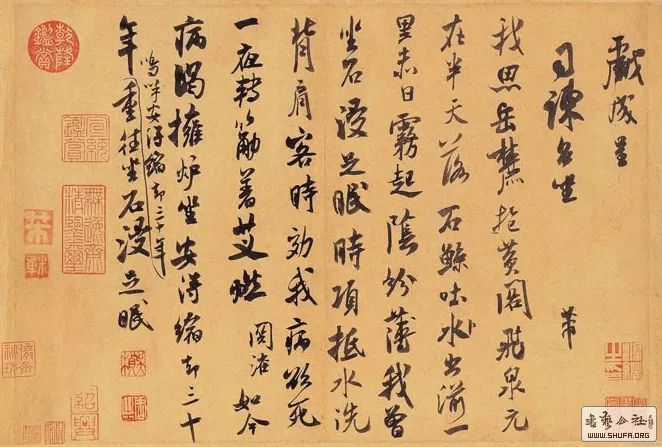 戲成呈
司諫台坐
芾
我思岳麓抱黃閣飛泉元
在半天落石鯨吐水出湔一
里赤日霧起陰紛薄我曾
坐石浸足眠時項抵水洗
背肩客時效我病欲死
一夜轉筋著艾燃 關灌 如今
病渴擁爐坐安得縮却三十
嗚呼安得縮却三十年
年重往坐石浸足眠
乾隆鑑賞
WWW.SHUFA.ORG